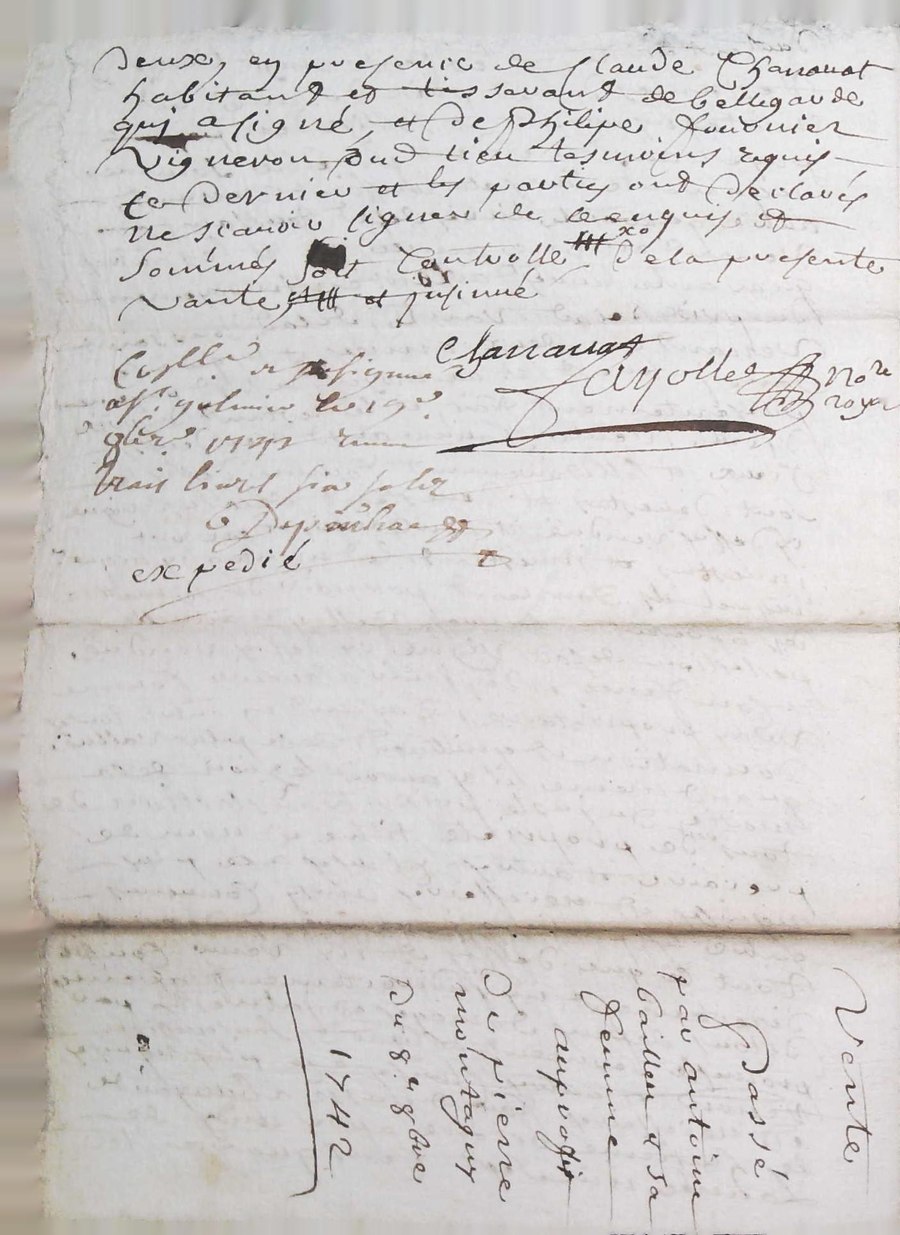 deux, en presence de Claude Charrouat
habitant et tisserant de bellegarde
qui a signé, et de Philipe fournier
Vigneron dud lieu tesmoins requis
ce dernier et les parties ont declarés
ne scavoir signer de ce enquis et
sommés soit Controlle de la presente
vante et insinué
Charrauat
Fayolle no.re
royal
Con.lle et insinué
a St galmier le 19e
8bre 1742 recu
trois livres six sols
expedié
Vente
Passé
par antoine
bailleu et sa
femme
au profit
De pierre
montaguy
Du 8e 8bre
1742